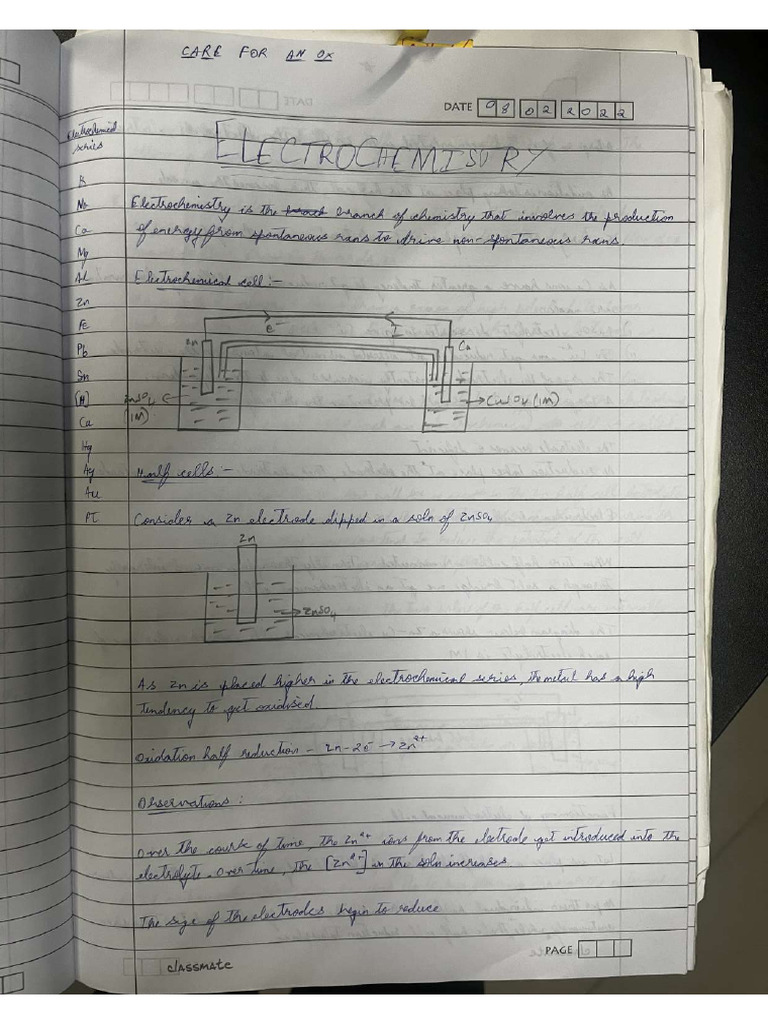 CARE FOR AN OX
DATE 08 02 2022
Electrochemical
series
K
Na
Ca
Mg
Al
Zn
Fe
Pb
Sn
(H)
Cu
Hg
Ag
Au
PT
ELECTROCHEMISTRY
Electrochemistry is the branch of chemistry that involves the production
of energy from spontaneous rxns to drive non-spontaneous rxns.
Electrochemical cell:-
e I
Zn Cu
ZnSO4 (1M)
CuSO4 (1M)
Half cells:-
Consider a Zn electrode dipped in a soln of ZnSO4
Zn
ZnSO4
As Zn is placed higher in the electrochemical series, the metal has a high
tendency to get oxidised
Oxidation half reduction - Zn-2e⁻ → Zn²⁺
Observations:
Over the course of time, the Zn²⁺ ions from the electrode get introduced into the
electrolyte. Over time, the [Zn²⁺] in the soln increases
The size of the electrodes begin to reduce
PAGE
classmate